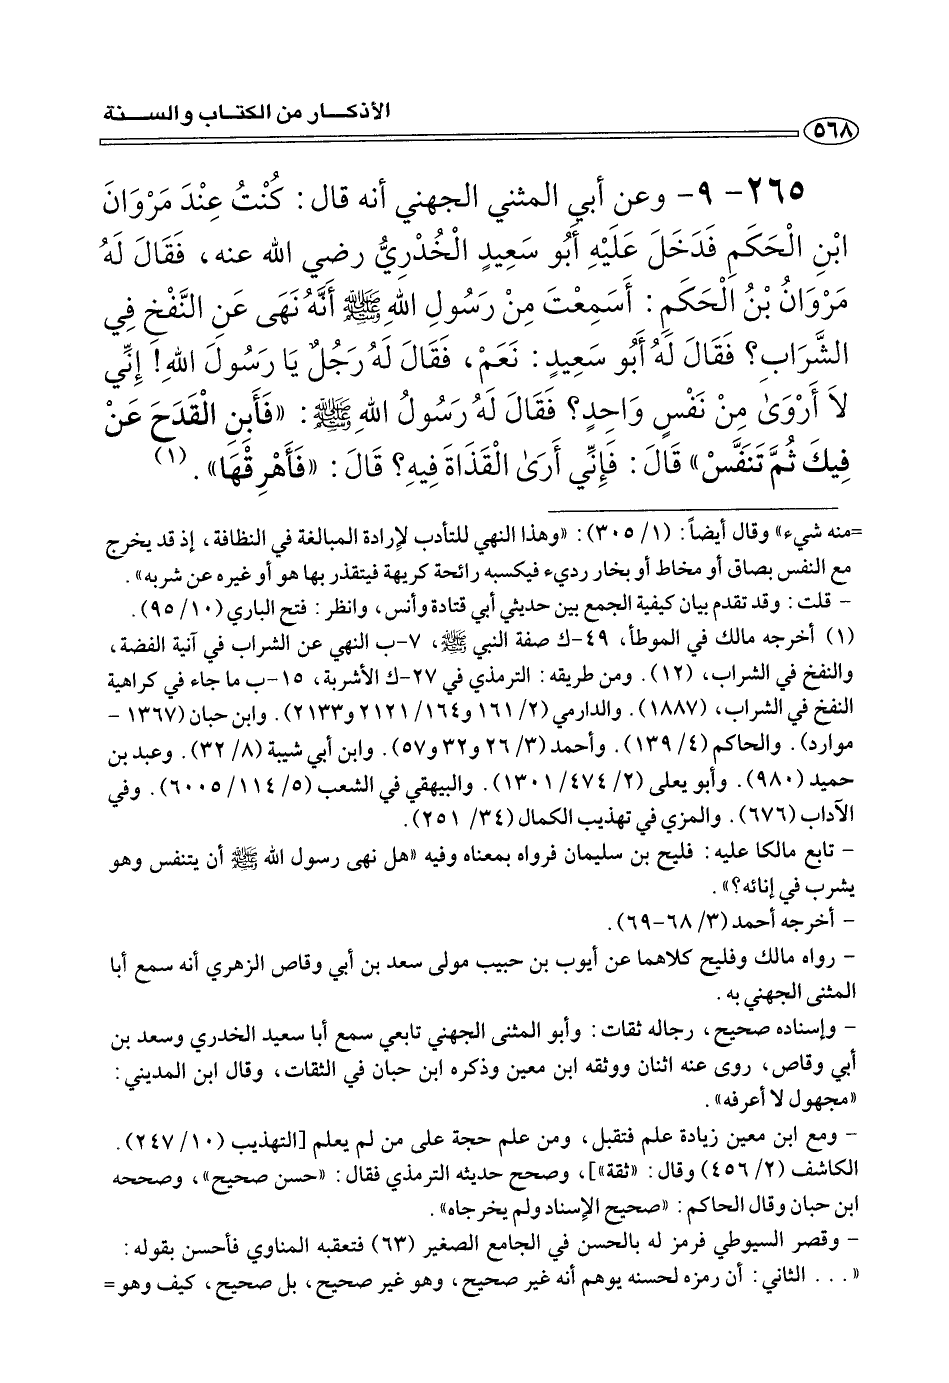 الأذكـــار من الكتـاب والســـنة
٥٦٨
٢٦٥- ٩- وعن أبي المثني الجهني أنه قال: كُنْتُ عِنْدَ مَرْوَانَ
ابْنِ الْحَكَمِ فَدَخَلَ عَلَيْهِ أَبُو سَعِيدٍ الْخُدْرِيُّ رضي الله عنه، فَقَالَ لَهُ
مَرْوَانُ بْنُ الْحَكَمِ: أَسَمِعْتَ مِنْ رَسُولِ اللهِ ﷺ أَنَّهُ نَهَى عَنِ النَّفْخِ فِي
الشَّرَابِ؟ فَقَالَ لَهُ أَبُو سَعِيدٍ: نَعَمْ، فَقَالَ لَهُ رَجُلٌ يَا رَسُولَ اللهِ! إِنِّي
لاَ أَرْوَىٰ مِنْ نَفْسٍ وَاحِدٍ؟ فَقَالَ لَهُ رَسُولُ اللهِ ﷺ: «فَأَبِنِ الْقَدَحَ عَنْ
فِيكَ ثُمَّ تَنَفَّسْ» قَالَ: فَإِنِّي أَرَىٰ الْقَذَاةَ فِيهِ؟ قَالَ: «فَأَهْرِقْهَا».(١)
=منه شيء» وقال أيضاً: (١/ ٣٠٥): «وهذا النهي للتأدب لإرادة المبالغة في النظافة، إذ قد يخرج
مع النفس بصاق أو مخاط أو بخار رديء فيكسبه رائحة كريهة فيتقذر بها هو أو غيره عن شربه».
- قلت: وقد تقدم بيان كيفية الجمع بين حديثي أبي قتادة وأنس، وانظر: فتح الباري (١٠/ ٩٥).
(١) أخرجه مالك في الموطأ، ٤٩-ك صفة النبي ﷺ، ٧-ب النهي عن الشراب في آنية الفضة،
والنفخ في الشراب، (١٢). ومن طريقه: الترمذي في ٢٧-ك الأشربة، ١٥-ب ما جاء في كراهية
النفخ في الشراب، (١٨٨٧). والدارمي (٢/ ١٦١ و١٦٤/ ٢١٢١ و٢١٣٣). وابن حبان (١٣٦٧ -
موارد). والحاكم (٤/ ١٣٩). وأحمد (٣/ ٢٦ و٣٢ و٥٧). وابن أبي شيبة (٨/ ٣٢). وعبد بن
حميد (٩٨٠). وأبو يعلى (٢/ ٤٧٤/ ١٣٠١). والبيهقي في الشعب (٥/ ١١٤/ ٦٠٠٥). وفي
الآداب (٦٧٦). والمزي في تهذيب الكمال (٣٤/ ٢٥١).
- تابع مالكا عليه: فليح بن سليمان فرواه بمعناه وفيه «هل نهى رسول الله ﷺ أن يتنفس وهو
يشرب في إنائه؟».
- أخرجه أحمد (٣/ ٦٨-٦٩).
- رواه مالك وفليح كلاهما عن أيوب بن حبيب مولى سعد بن أبي وقاص الزهري أنه سمع أبا
المثنى الجهني به.
- وإسناده صحيح، رجاله ثقات: وأبو المثنى الجهني تابعي سمع أبا سعيد الخدري وسعد بن
أبي وقاص، روى عنه اثنان ووثقه ابن معين وذكره ابن حبان في الثقات، وقال ابن المديني:
«مجهول لا أعرفه».
- ومع ابن معين زيادة علم فتقبل، ومن علم حجة على من لم يعلم [التهذيب (١٠/ ٢٤٧).
الكاشف (٢/ ٤٥٦) وقال: «ثقة»]، وصحح حديثه الترمذي فقال: «حسن صحيح»، وصححه
ابن حبان وقال الحاكم: «صحيح الإسناد ولم يخرجاه».
- وقصر السيوطي فرمز له بالحسن في الجامع الصغير (٦٣) فتعقبه المناوي فأحسن بقوله:
«... الثاني: أن رمزه لحسنه يوهم أنه غير صحيح، وهو غير صحيح، بل صحيح، كيف وهو=